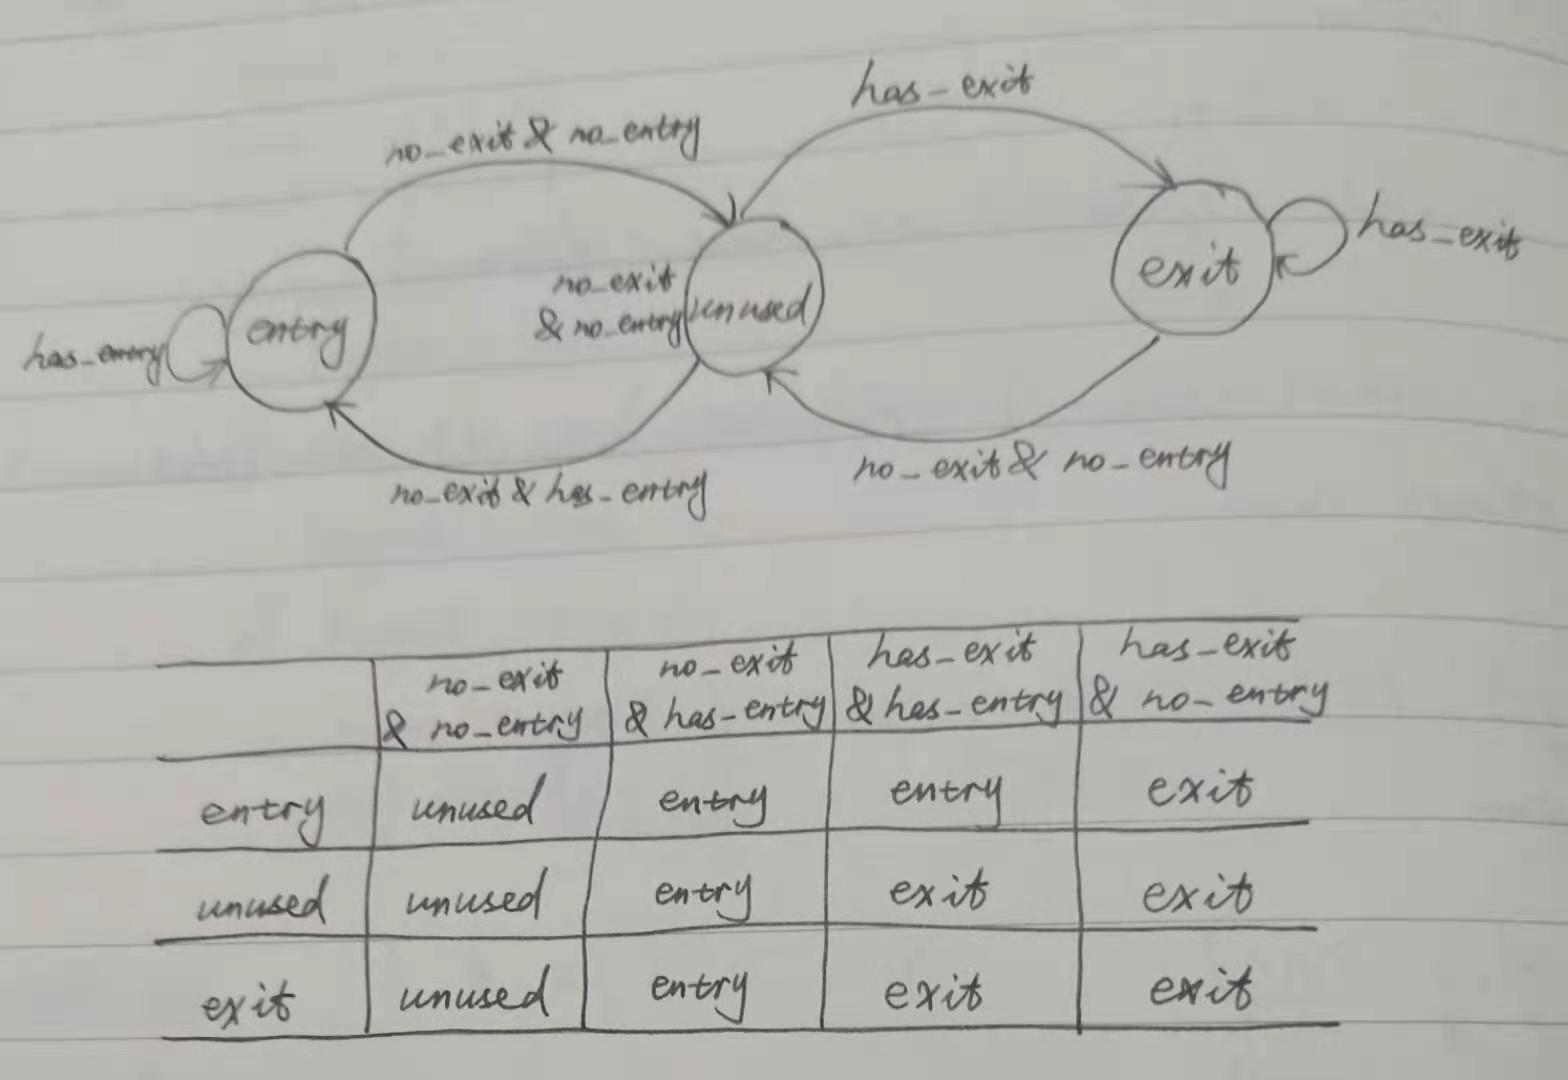 has_exit
no_exit & no_entry
has_exit
no_exit
& no_entry
unused
exit
entry
has_entry
no_exit & has_entry
no_exit & no_entry
no_exit & no_entry
no_exit & has_entry
has_exit & has_entry
has_exit & no_entry
entry unused entry entry exit
unused unused entry exit exit
exit unused entry exit exit